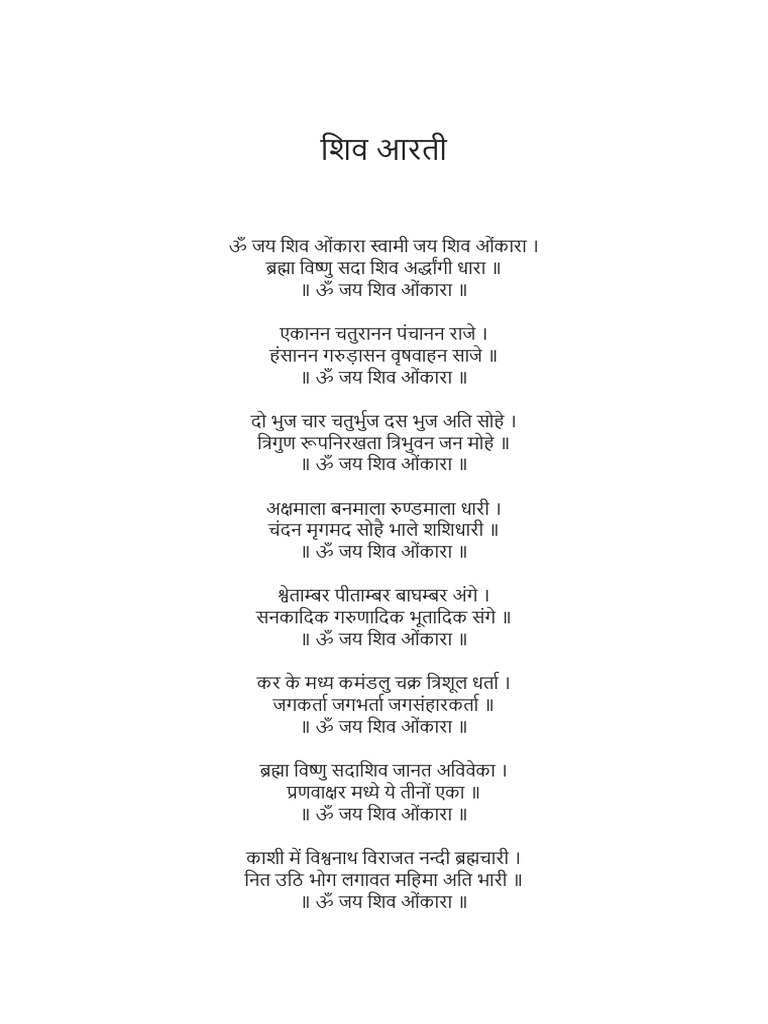 शिव आरती
ॐ जय शिव ओंकारा स्वामी जय शिव ओंकारा ।
ब्रह्मा विष्णु सदा शिव अर्द्धांगी धारा ॥
॥ ॐ जय शिव ओंकारा ॥
एकानन चतुरानन पंचानन राजे ।
हंसानन गरुड़ासन वृषवाहन साजे ॥
॥ ॐ जय शिव ओंकारा ॥
दो भुज चार चतुर्भुज दस भुज अति सोहे ।
त्रिगुण रूपनिरखता त्रिभुवन जन मोहे ॥
॥ ॐ जय शिव ओंकारा ॥
अक्षमाला बनमाला रुण्डमाला धारी ।
चंदन मृगमद सोहै भाले शशिधारी ॥
॥ ॐ जय शिव ओंकारा ॥
श्वेताम्बर पीताम्बर बाघम्बर अंगे ।
सनकादिक गरुणादिक भूतादिक संगे ॥
॥ ॐ जय शिव ओंकारा ॥
कर के मध्य कमंडलु चक्र त्रिशूल धर्ता ।
जगकर्ता जगभर्ता जगसंहारकर्ता ॥
॥ ॐ जय शिव ओंकारा ॥
ब्रह्मा विष्णु सदाशिव जानत अविवेका ।
प्रणवाक्षर मध्ये ये तीनों एका ॥
॥ ॐ जय शिव ओंकारा ॥
काशी में विश्वनाथ विराजत नन्दी ब्रह्मचारी ।
नित उठि भोग लगावत महिमा अति भारी ॥
॥ ॐ जय शिव ओंकारा ॥